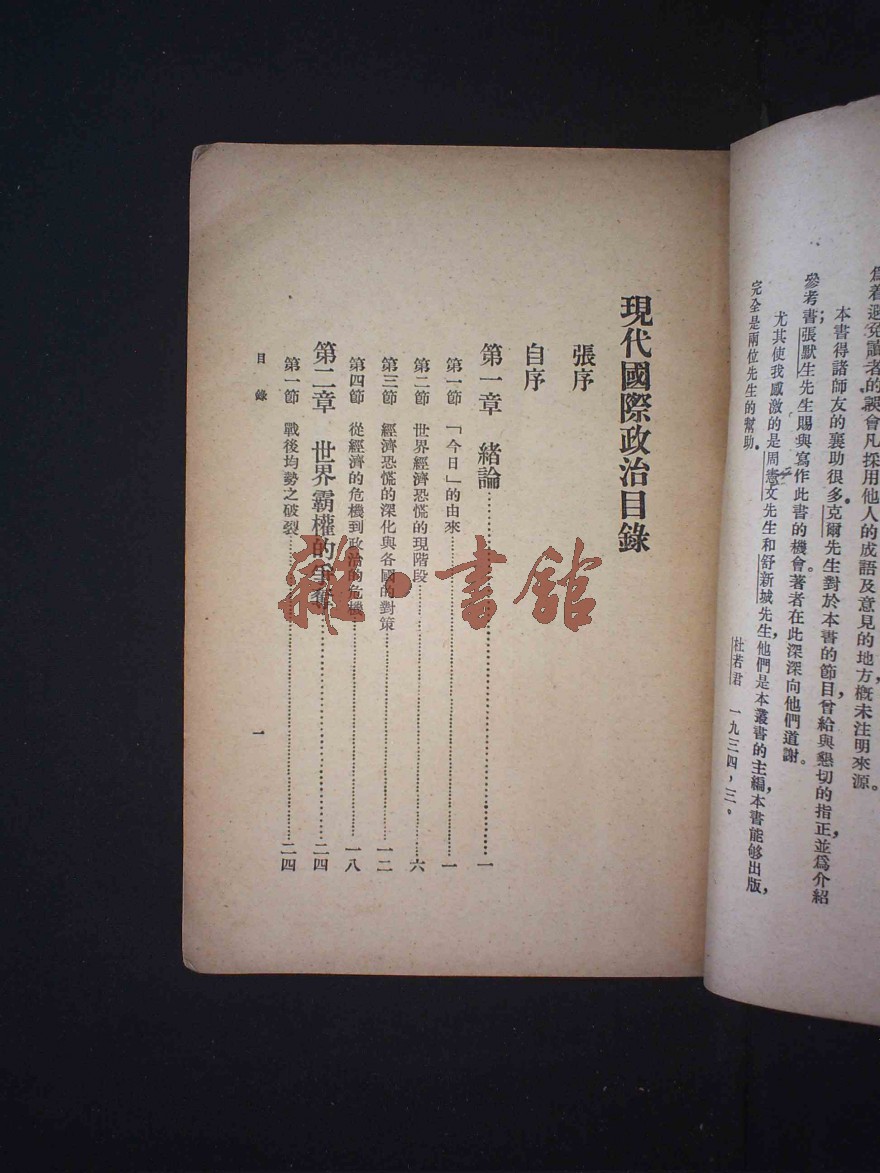 爲着避免讀者的誤會凡採用他人的成語及意見的地方，槪未注明來源。
本書得諸師友的襄助很多。克爾先生對於本書的節目曾給與懇切的指正並爲介紹
參考書；張默生先生賜與寫作此書的機會著者在此深深向他們道謝。
尤其使我感激的是周憲文先生和舒新城先生，他們是本叢書的主編，本書能够出版，
完全是兩位先生的幫助。
杜若君　一九三四，三。
現代國際政治目錄
張序
自序
第一章　緒論……一
第一節　「今日」的由來……一
第二節　世界經濟恐慌的現階段……六
第三節　經濟恐慌的深化與各國的對策……一二
第四節　從經濟的危機到政治的危機……一八
第二章　世界霸權的爭奪……二四
第一節　戰後均勢之破裂……二四
目錄
一
雜·書館